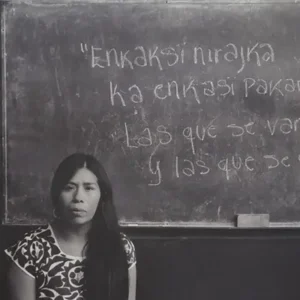 "Enkaksi nirajka
ka enkasi paka
Las que se va
y las que se